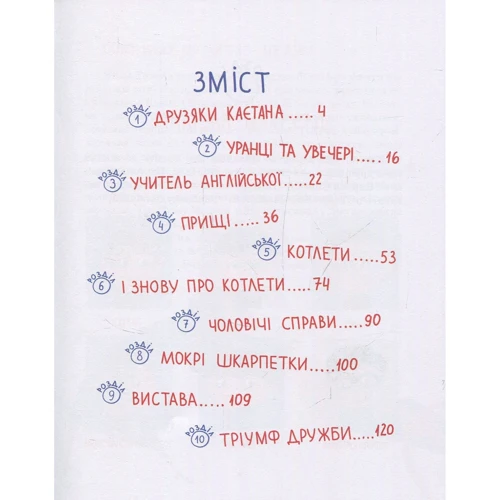 ЗМІСТ
РОЗДІЛ 1 ДРУЗЯКИ КАЄТАНА.....4
РОЗДІЛ 2 УРАНЦІ ТА УВЕЧЕРІ.....16
РОЗДІЛ 3 УЧИТЕЛЬ АНГЛІЙСЬКОЇ.....22
РОЗДІЛ 4 ПРИЩІ.....36
РОЗДІЛ 5 КОТЛЕТИ.....53
РОЗДІЛ 6 І ЗНОВУ ПРО КОТЛЕТИ.....74
РОЗДІЛ 7 ЧОЛОВІЧІ СПРАВИ.....90
РОЗДІЛ 8 МОКРІ ШКАРПЕТКИ.....100
РОЗДІЛ 9 ВИСТАВА.....109
РОЗДІЛ 10 ТРІУМФ ДРУЖБИ.....120